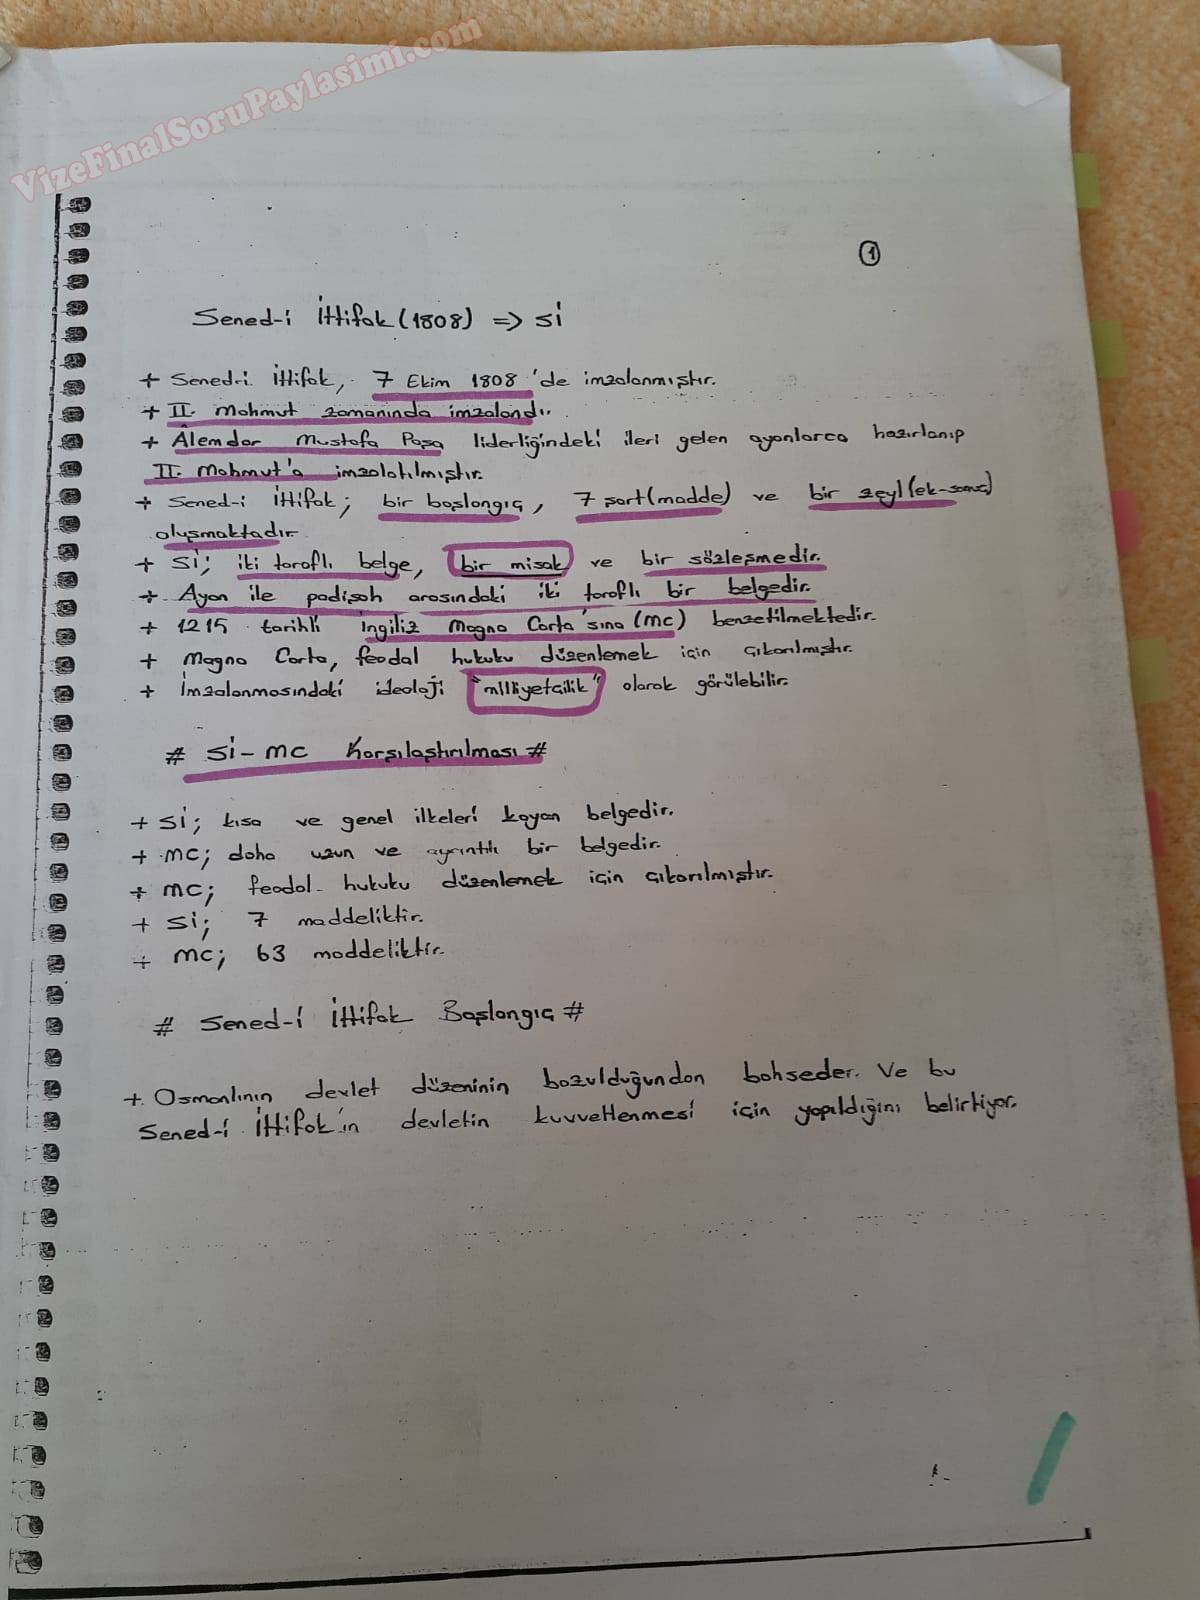 VizeFinalSoruPaylasimi.com
1
Sened-i İttifak (1808) => Sİ
+ Sened-i İttifak, 7 Ekim 1808'de imzalanmıştır.
+ II. Mahmut zamanında imzalandı.
+ Âlemdar Mustafa Paşa liderliğindeki ileri gelen ayanlarca hazırlanıp
II. Mahmut'a imzalatılmıştır.
+ Sened-i İttifak; bir başlangıç, 7 şart (madde) ve bir zeyl (ek-sonuç)
oluşmaktadır
+ Sİ; iki taraflı belge, bir misak ve bir sözleşmedir.
+ Ayan ile padişah arasındaki iki taraflı bir belgedir.
+ 1215 tarihli İngiliz Magna Carta'sına (MC) benzetilmektedir.
+ Magna Carta, feodal hukuku düzenlemek için çıkarılmıştır.
+ İmzalanmasındaki ideoloji "milliyetçilik" olarak görülebilir.
# Sİ - MC Karşılaştırılması #
+ Sİ; kısa ve genel ilkeleri koyan belgedir.
+ MC; daha uzun ve ayrıntılı bir belgedir.
+ MC; feodal hukuku düzenlemek için çıkarılmıştır.
+ Sİ; 7 maddeliktir.
+ MC; 63 maddeliktir.
# Sened-i İttifak Başlangıç #
+ Osmanlının devlet düzeninin bozulduğundan bahseder. Ve bu
Sened-i İttifak'ın devletin kuvvetlenmesi için yapıldığını belirtiyor.